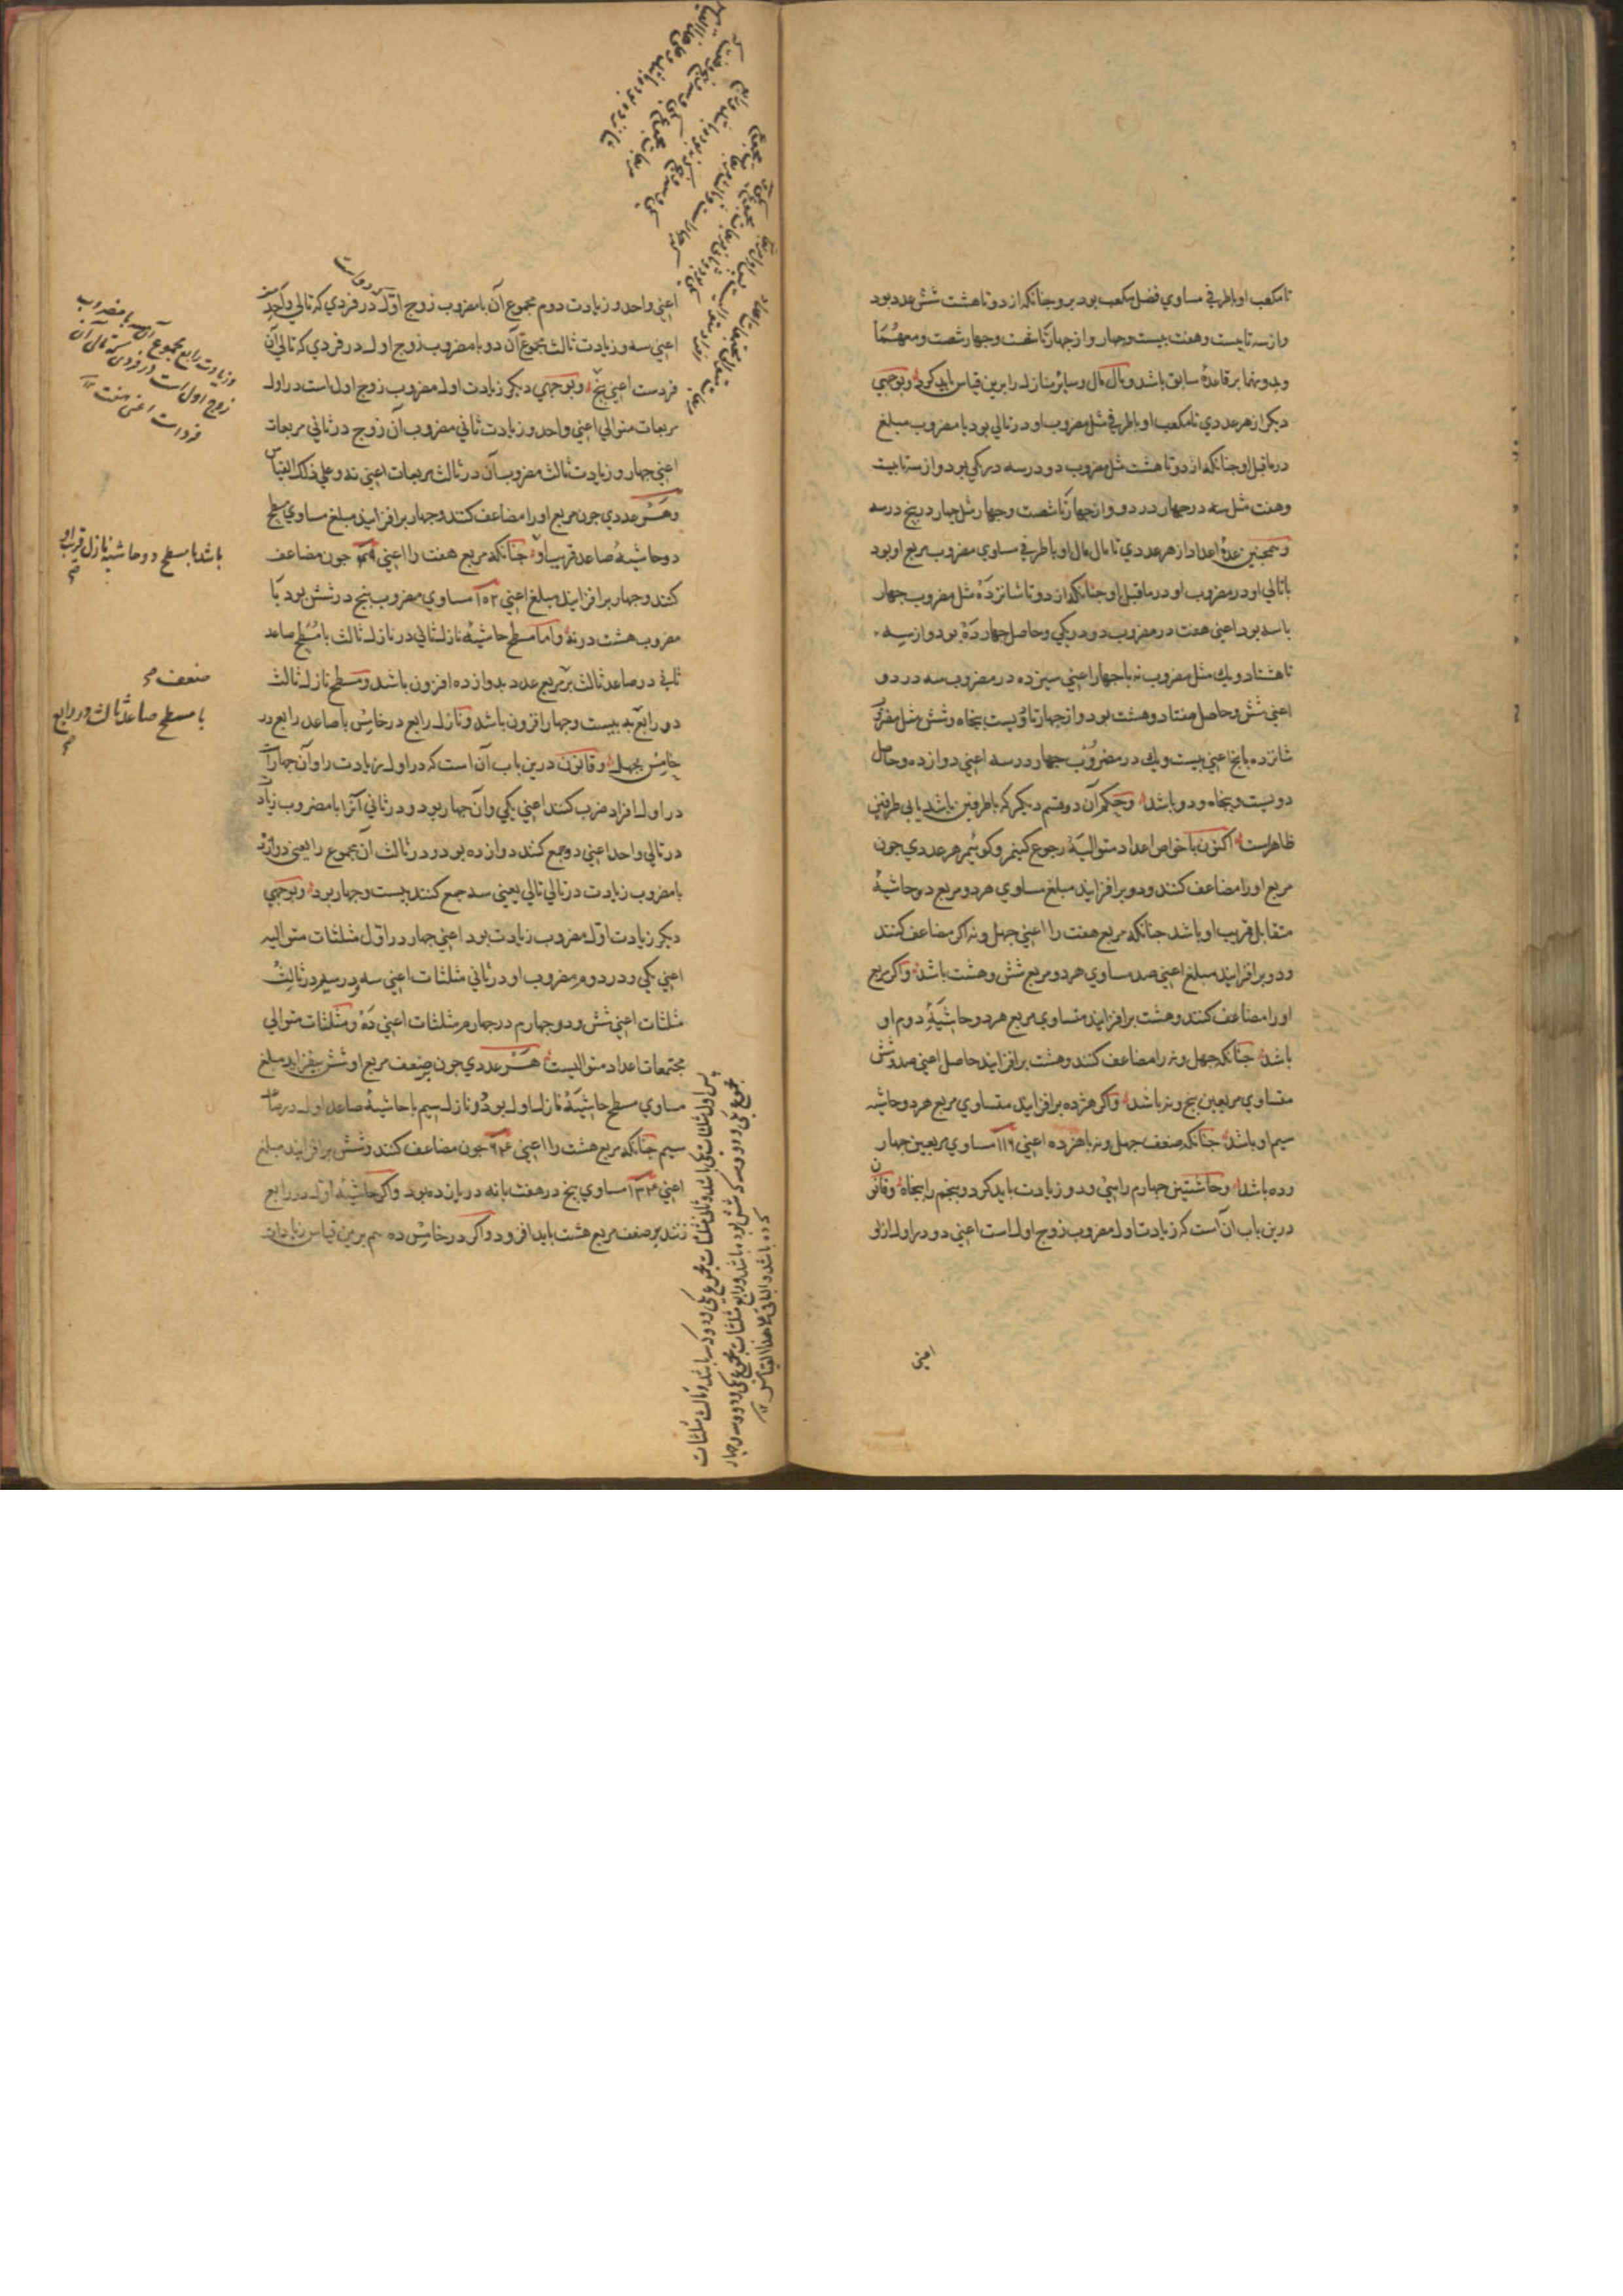 تا مکعب او باطرفی مساوی فضل مکعب بود برو چنانکه از دو تا هشت شش عدد بود
واز سه تا بیست وهفت بیست وچهار واز چهار تا شصت وچهار شصت
وبدونها بر قاعدهٔ سابق باشد ومال مال وسائر منازل را برین قیاس باید کرد وبوجهی
دیکر از هر عددی تا مکعب او باطرفی مثل مضروب او در تالی بود با مضروب مبلغ
در ماقبل او چنانکه از دو تا هشت مثل مضروب دو در سه در یکی بود واز سه تا بیست
وهفت مثل سه در چهار در دو واز چهار تا شصت وچهار مثل چهار در پنج در سه
وهمچنین عدهٔ اعداد از هر عددی تا مال مال او باطرفی مساوی مضروب مربع او بود
با تالی او در مضروب او در ماقبل او چنانکه از دو تا شانزده مثل مضروب چهار
با سه بود اعنی هفت در مضروب دو در یکی وحاصل چهارده بود واز سه
تا هشتاد ویک مثل مضروب نه با چهار اعنی سیزده در مضروب سه در دو
اعنی شش وحاصل هفتاد وهشت بود واز چهار تا دویست پنجاه وشش مثل مضروب
شانزده با پنج اعنی بیست ویک در مضروب چهار در سه اعنی دوازده وحاصل
دویست وپنجاه ودو باشد وحکم آن دو قسم دیکر که باطرفین باشد یا بی طرفین
ظاهراست اکنون با خواص اعداد متوالیهٔ رجوع کنیم وکوئیم هر عددی چون
مربع او را مضاعف کنند ودو برافزایند مبلغ مساوی هر دو مربع دو حاشیهٔ
متقابل قریب او باشد چنانکه مربع هفت را اعنی چهل ونه اکر مضاعف کنند
ودو برافزایند مبلغ اعنی صد مساوی هر دو مربع شش وهشت باشد واکر مربع
او را مضاعف کنند وهشت برافزایند متساوی مربع هر دو حاشیهٔ دوم او
باشد چنانکه چهل ونه را مضاعف کنند وهشت برافزایند حاصل اعنی صد وشش
متساوی مربعین پنج ونه باشد واکر هژده برافزایند متساوی مربع هر دو حاشیه
سیم او باشد چنانکه ضعف چهل ونه با هژده اعنی ۱۱۶ مساوی مربعین چهار
وده باشد وحاشیتین چهارم را سی ودو زیادت باید کرد وپنجم را پنجاه وقانون
درین باب آن است که زیادت اول مضروب زوج اول است اعنی دو در اول از
اعنی
اعنی واحد وزیادت دوم مجموع آن با مضروب زوج اول در فردی که تالی واحد
اعنی سه وزیادت ثالث مجموع آن دو با مضروب زوج اول در فردی که تالی آن
فردست اعنی پنج وبوجهی دیکر زیادت اول مضروب زوج اول است در اول
مربعات متوالی اعنی واحد وزیادت ثانی مضروب آن زوج در ثانی مربعات
اعنی چهار وزیادت ثالث مضروب آن در ثالث مربعات اعنی نه وعلی ذلک القیاس
وهر عددی چون مربع او را مضاعف کنند وچهار برافزایند مبلغ مساوی مسطح
دو حاشیهٔ صاعد قریب او چنانکه مربع هفت را اعنی ۴۹ چون مضاعف
کنند وچهار برافزایند مبلغ اعنی ۱۰۲ مساوی مضروب پنج در شش بود با
مضروب هشت در نه واما مسطح حاشیهٔ نازل ثانی در نازل ثالث با مسطح صاعد
ثانی در صاعد ثالث بر مربع عدد بدوازده افزون باشد ومسطح نازل ثالث
در رابع به بیست وچهار افزون باشد ونازل رابع در خامس با صاعد رابع در
خامس بچهل وقانون درین باب آن است که در اول زیادت را وآن چهار است
در اول افراد ضرب کنند اعنی یکی وآن چهار بود ودر ثانی آنرا با مضروب زیادت
در تالی واحد اعنی دو جمع کنند دوازده بود ودر ثالث آن مجموع را یعنی دوازده
با مضروب زیادت در تالی تالی یعنی سه جمع کنند بیست وچهار بود وبوجهی
دیکر زیادت اول مضروب زیادت بود اعنی چهار در اول مثلثات متوالیه
اعنی یکی ودر دوم مضروب او در ثانی مثلثات اعنی سه ودر سیم در ثالث
مثلثات اعنی شش ودر چهارم در چهارم مثلثات اعنی ده ومثلثات متوالی
مجتمعات اعداد متوالیست هر عددی چون بر ضعف مربع او شش بیفزاید مبلغ
مساوی مسطح حاشیهٔ نازل اول بود ونازل سیم با حاشیهٔ صاعد اول در صاعد
سیم چنانکه مربع هشت را اعنی ۶۴ چون مضاعف کنند وشش برافزایند مبلغ
اعنی ۱۳۴ مساوی پنج در هفت با نه در یازده بود واکر حاشیهٔ اول در رابع
زنند بر ضعف مربع هشت باید افزود واکر در خامس ده هم برین قیاس زیادات
وزیادت رابع مجموع آن سه با مضروب
زوج اول است در فردی که تالی آن
فرد است اعنی هفت
باشد با مسطح دو حاشیه نازل قریب او
صح
ضعف صح
با مسطح صاعد ثالث در رابع
صح
پس اول مثلثات یکی باشد وثانی مثلثات مجموع یکی ودو که سه باشد وثالث مثلثات
مجموع یکی ودو وسه که شش بوده باشد ورابع مثلثات مجموع یکی ودو وسه وچهار
که ده باشد والباقی علی هذا القیاس